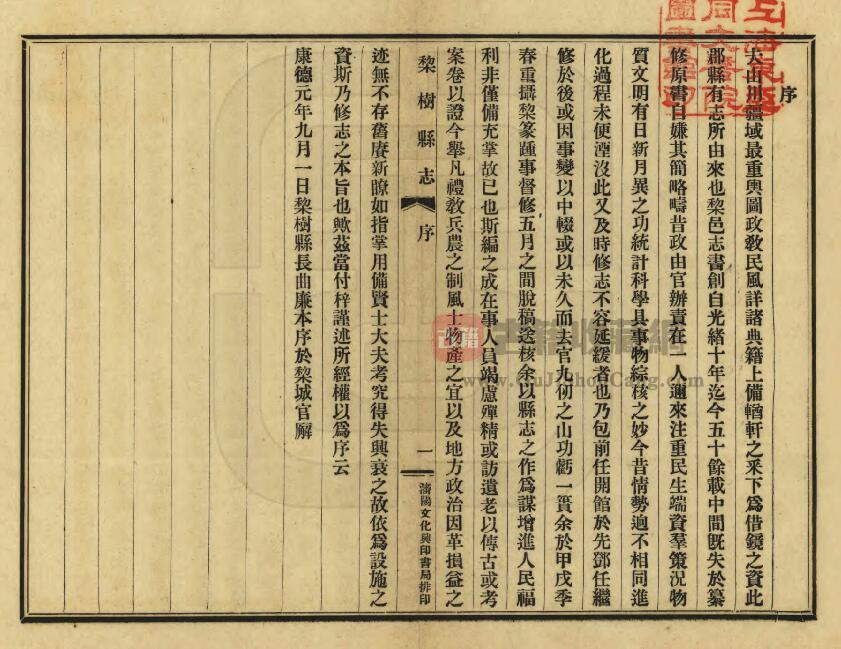 序
夫山川疆域最重輿圖政敎民風詳諸典籍上備輶軒之釆下爲借鏡之資此
郡縣有志所由來也黎邑志書創自光緒十年迄今五十餘載中間旣失於纂
修原書自嫌其簡略疇昔政由官辦責在一人邇來注重民生端資羣策況物
質文明有日新月異之功統計科學具事物綜核之妙今昔情勢逈不相同進
化過程未便湮沒此又及時修志不容延緩者也乃包前任開館於先鄧任繼
修於後或因事變以中輟或以未久而去官九仞之山功虧一簣余於甲戌季
春重攝黎篆踵事督修五月之間脫稿送核余以縣志之作爲謀增進人民福
利非僅備充掌故已也斯編之成在事人員竭慮殫精或訪遺老以傳古或考
案卷以證今舉凡禮敎兵農之制風土物產之宜以及地方政治因革損益之
黎樹縣志
序
一
瀋陽文化興印書局排印
迹無不存舊賡新瞭如指掌用備賢士大夫考究得失興衰之故依爲設施之
資斯乃修志之本旨也歟茲當付梓謹述所經權以爲序云
康德元年九月一日黎樹縣長曲廉本序於黎城官廨
古籍收藏網
www.GuJiShouCang.com